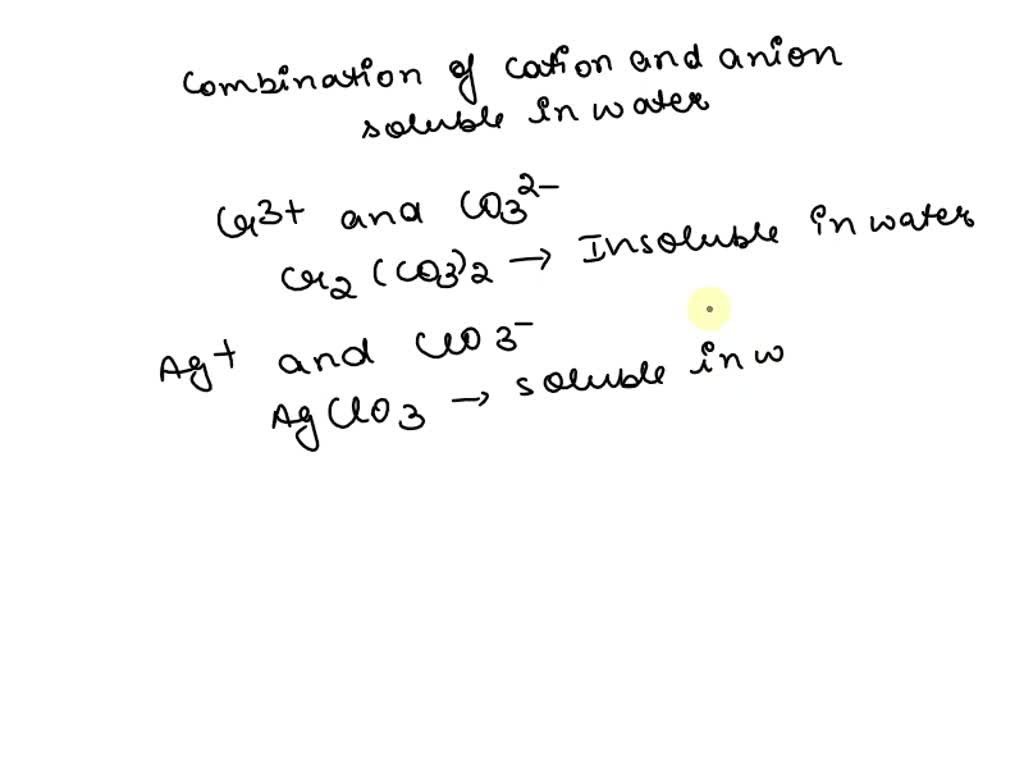 Combination of cation and anion
soluble in water
Cr3+ and CO3 2-
Cr2 (CO3)2 → Insoluble in water
Ag+ and ClO3-
AgClO3 → soluble in w